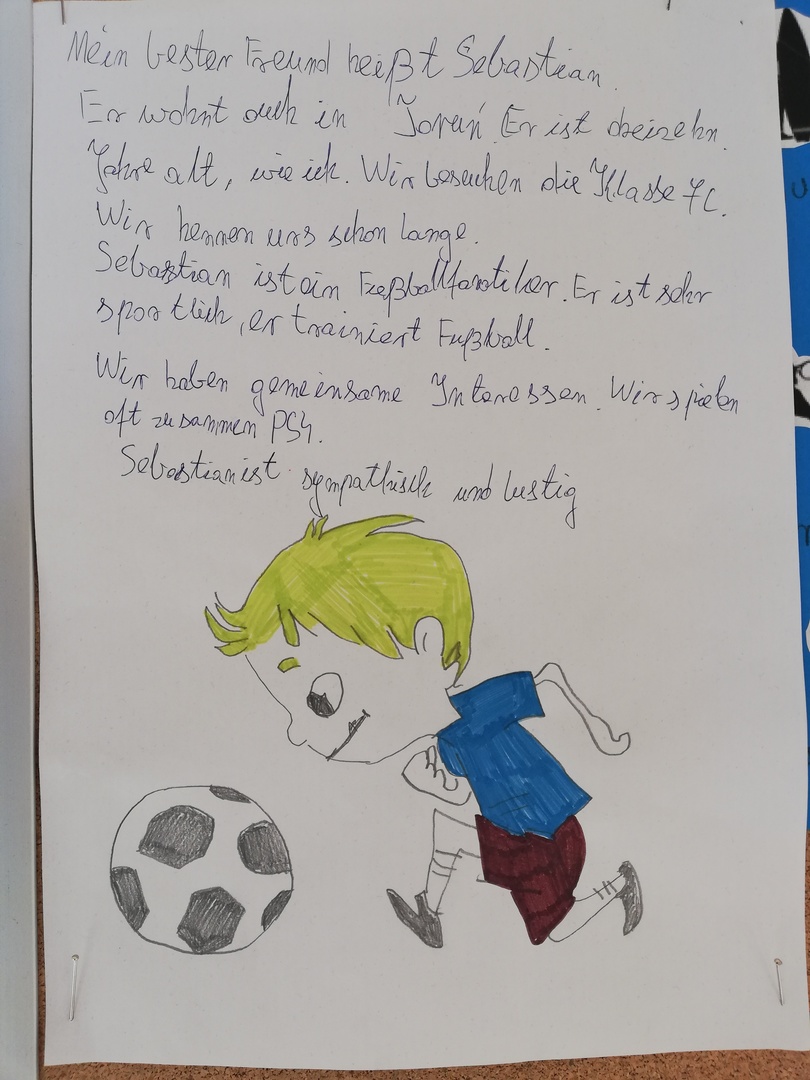 Mein bester Freund heißt Sebastian.
Er wohnt auch in Toruń. Er ist dreizehn.
Jahre alt, wie ich. Wir besuchen die Klasse 7c.
Wir kennen uns schon lange.
Sebastian ist ein Fußballfanatiker. Er ist sehr
sportlich, er trainiert Fußball.
Wir haben gemeinsame Interessen. Wir spielen
oft zusammen PS4.
Sebastian ist sympathisch und lustig